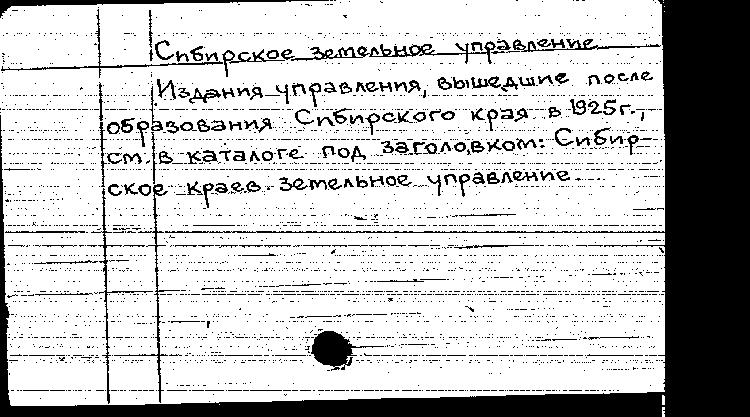 Сибирское земельное управление
Издания управления, вышедшие после
образования Сибирского края в 1925г.,
см. в каталоге под заголовком: Сибир-
ское краев. земельное управление.